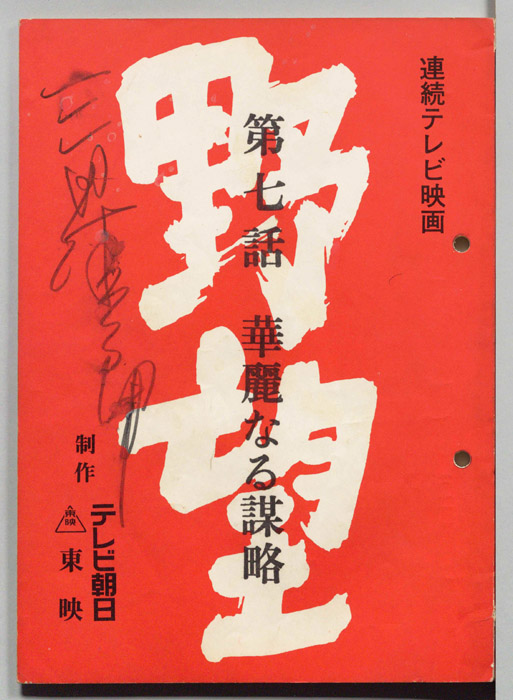 連続テレビ映画
野望
第七話 華麗なる謀略
制作
テレビ朝日
東映
東映